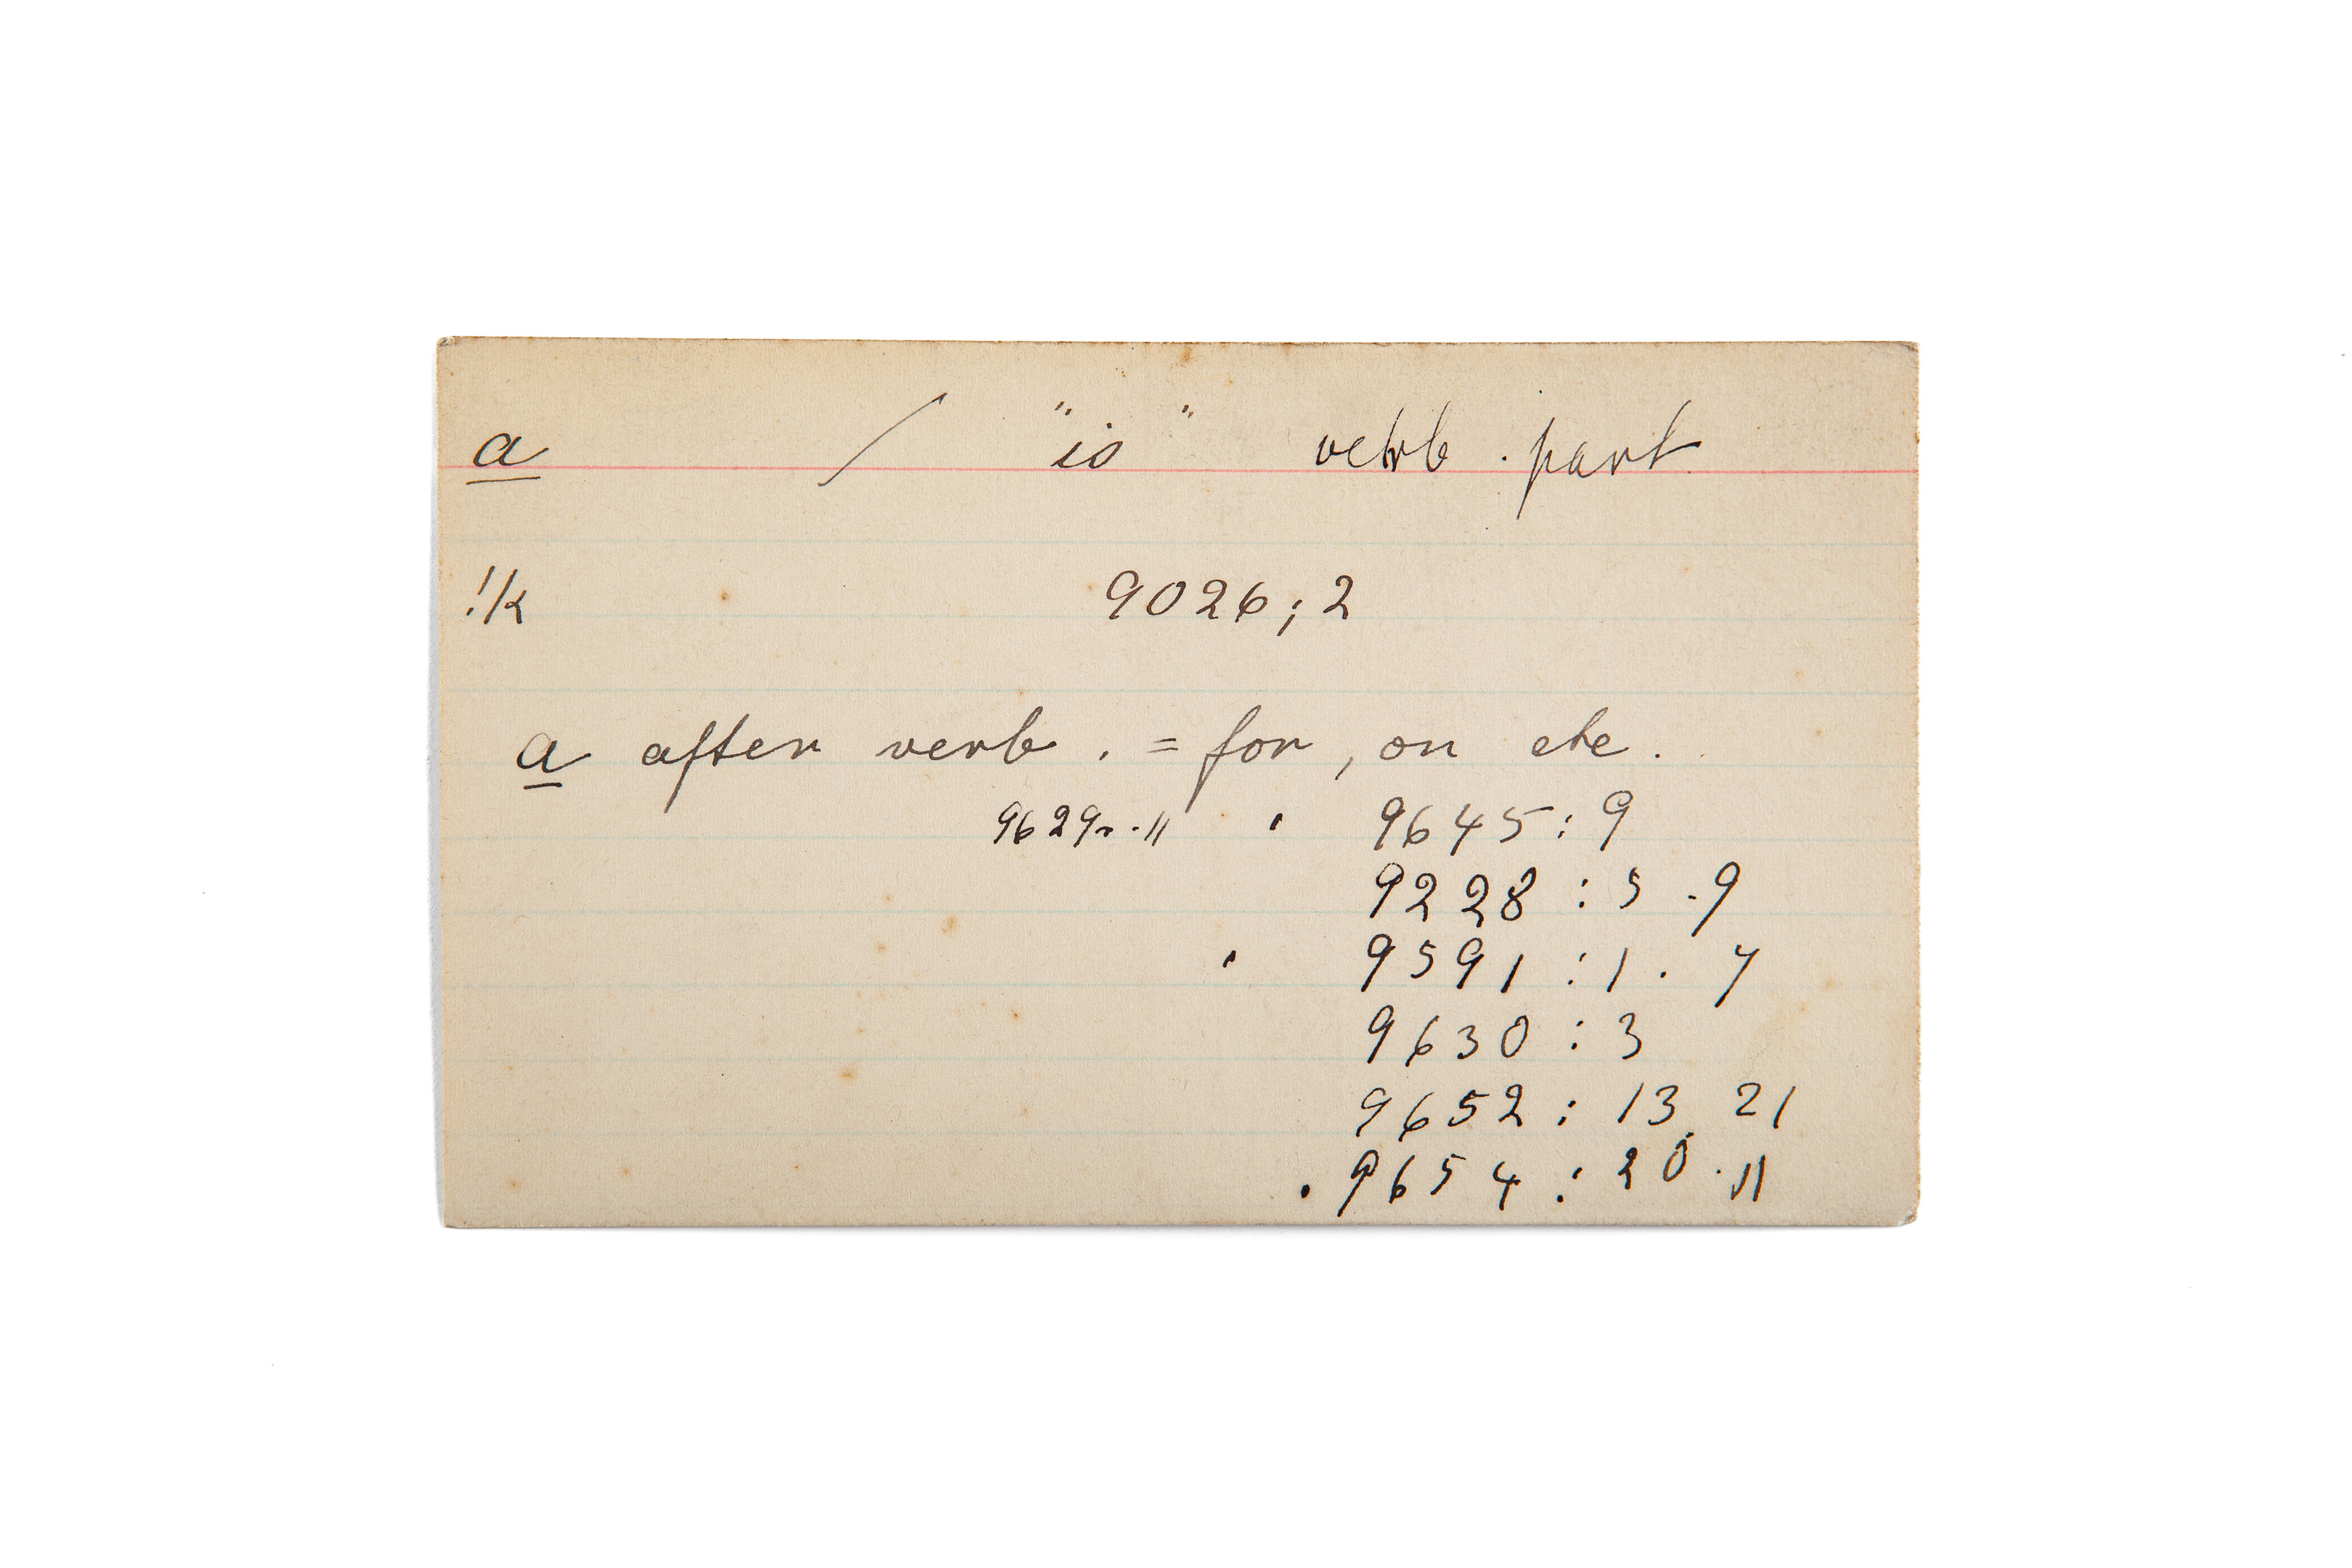 a / "is" verb. part
!k 9026; 2
a after verb. = for, on etc.
9629r. 11 . 9645: 9
9228: 5. 9
. 9591: 1. 7
9630: 3
9652: 13. 21
. 9654: 20. 11